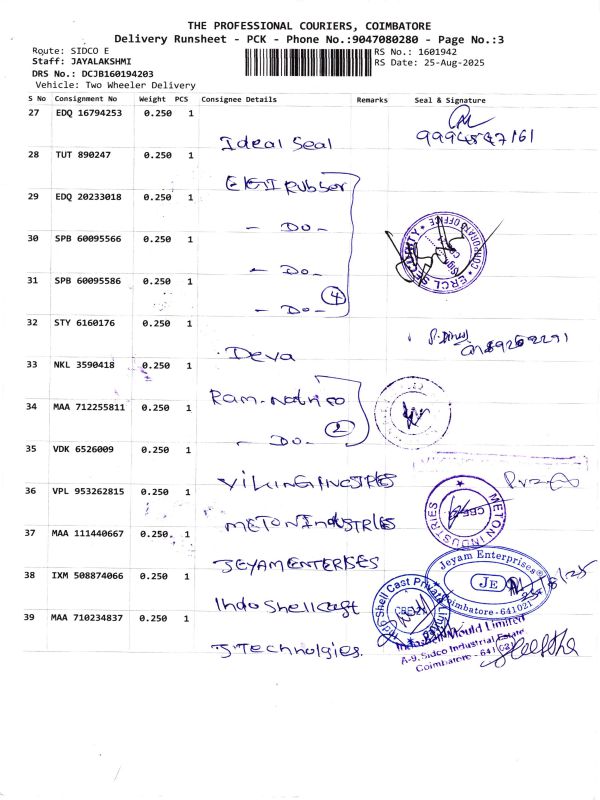 THE PROFESSIONAL COURIERS, COIMBATORE
Delivery Runsheet - PCK - Phone No.:9047080280 - Page No.:3
Route: SIDCO E
RS No.: 1601942
Staff: JAYALAKSHMI
RS Date: 25-Aug-2025
DRS No.: DCJB160194203
Vehicle: Two Wheeler Delivery
S No Consignment No Weight PCS Consignee Details Remarks Seal & Signature
27 EDQ 16794253 0.250 1
Ideal Seal
28 TUT 890247 0.250 1
ElGI Rubber
29 EDQ 20233018 0.250 1
- Do -
30 SPB 60095566 0.250 1
- Do -
31 SPB 60095586 0.250 1
- Do - 4
ERCL SECURITY CORPORATE OFFICE
32 STY 6160176 0.250 1
Deva
33 NKL 3590418 0.250 1
34 MAA 712255811 0.250 1
- Do - 2
35 VDK 6526009 0.250 1
36 VPL 953262815 0.250 1
METON IndUSTRIES
METON INDUSTRIES
CBE
37 MAA 111440667 0.250 1
JEYAM ENTERISES
Jeyam Enterprises
JE
Coimbatore-641021
38 IXM 508874066 0.250 1
Indo Shell cast
Indo Shell Cast Private Limited
39 MAA 710234837 0.250 1
J Technolgies.
Indo Shell Mould Limited
A-9, Sidco Industrial Estate
Coimbatore - 641 021